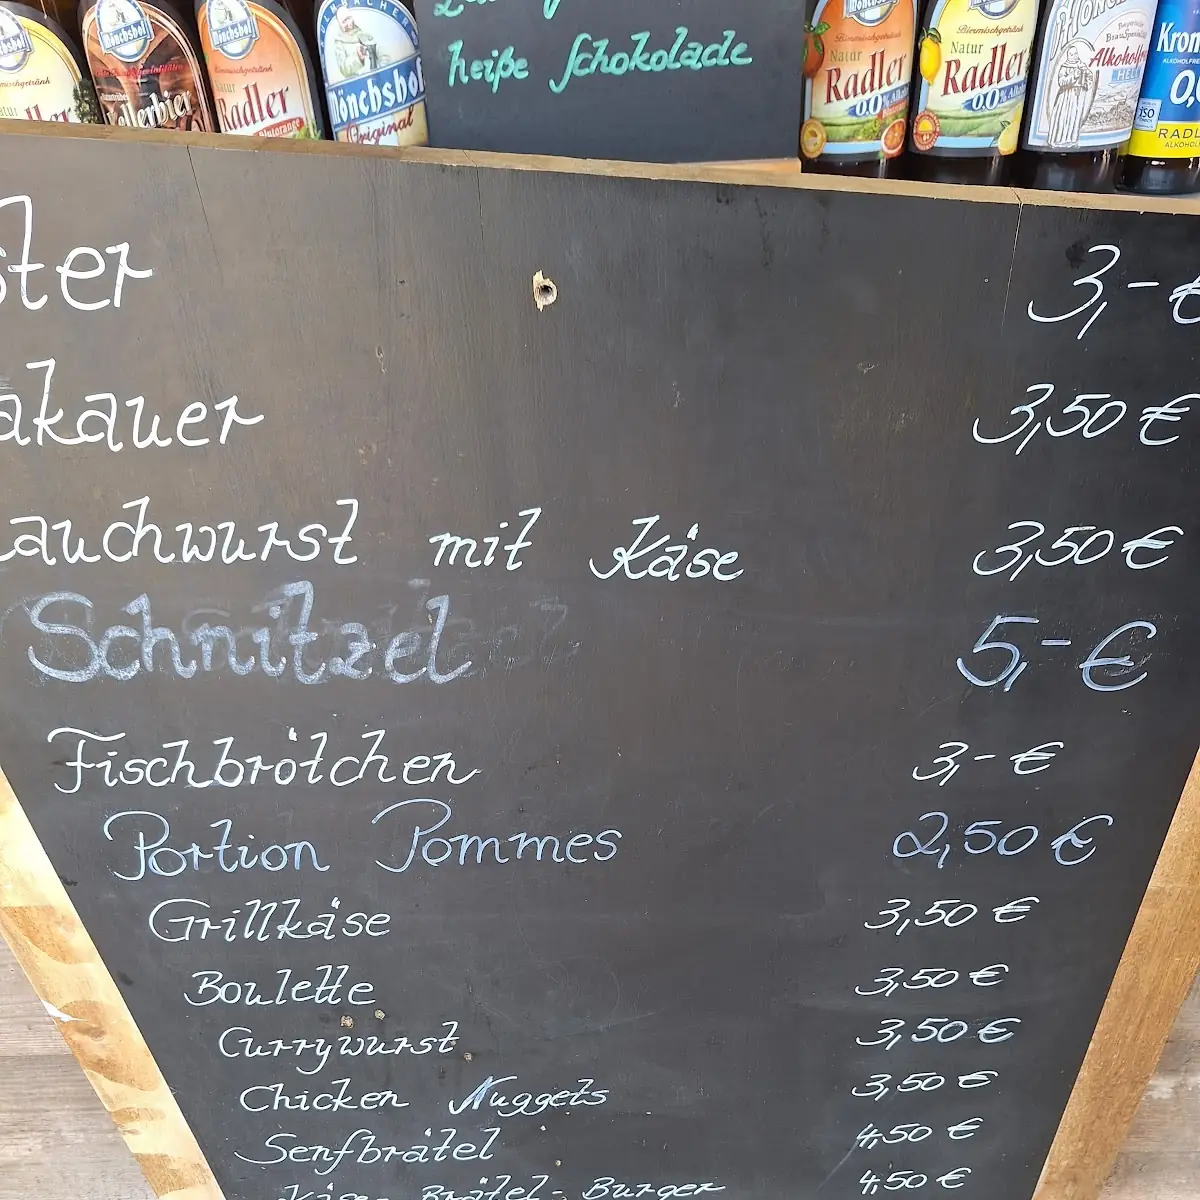 heiße Schokolade
Mönchshof
Kellerbier
Mönchshof
Natur
Radler
Blutorange
Mönchshof
Original
Mönchshof
Biermischgetränk
Natur
Radler
0,0%
Mönchshof
Biermischgetränk
Natur
Radler
0,0%
Bayerische
Alkoholfrei
HELL
ALKOHOLFREI
ISO
RADL
ster 3,- €
akauer 3,50 €
auchwurst mit Käse 3,50 €
Schnitzel 5,- €
Fischbrötchen 3,- €
Portion Pommes 2,50 €
Grillkäse 3,50 €
Boulette 3,50 €
Currywurst 3,50 €
Chicken Nuggets 3,50 €
Senfbrätel 4,50 €
Käse- Brätel- Burger 4,50 €